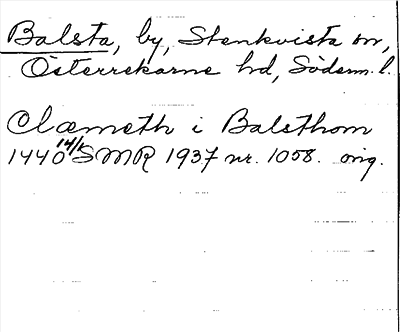 Balsta, by, Stenkvista sn,
Österrekarne hd, Söderm. l.
Clæmeth i Balsthom
1440 14/1 SMR 1937 nr. 1058. orig.